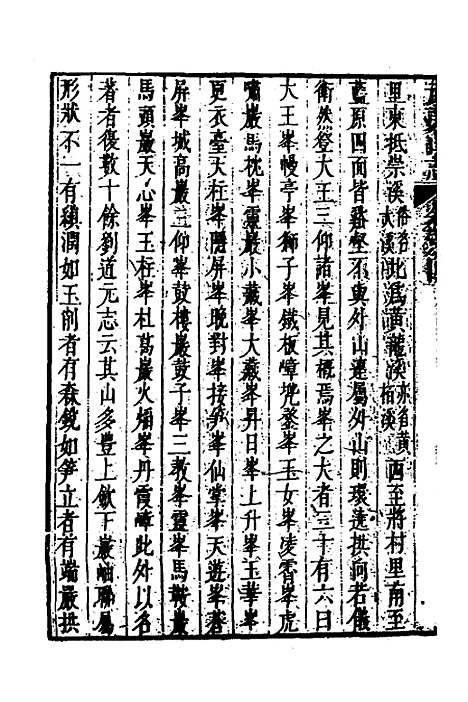 里東抵崇溪俗名大溪北爲黃龍溪亦名黃柏溪西至將村里南至
藍原四面皆谿壑不與外山連屬外山則環遶拱向若儀
衛然登大王三仰諸峯見其槪焉峯之大者三十有六曰
大王峯幔亭峯獅子峯鐵板嶂兜鍪峯玉女峯凌霄峯虎
嘯巖馬枕峯靈巖小藏峯大藏峯昇日峯上升峯玉華峯
更衣臺天柱峯隱屏峯晚對峯接笋峯仙掌峯天遊峯蒼
屏峯城高巖三仰峯鼓樓巖鼓子峯三教峯靈峯馬鞍巖
馬頭巖天心峯玉柱峯杜葛巖火焰峯丹霞嶂此外以名
著者復數十餘劉道元志云其山多豐上斂下巖岫聯屬
形狀不一有縝潤如玉削者有森銳如笋立者有端嚴拱